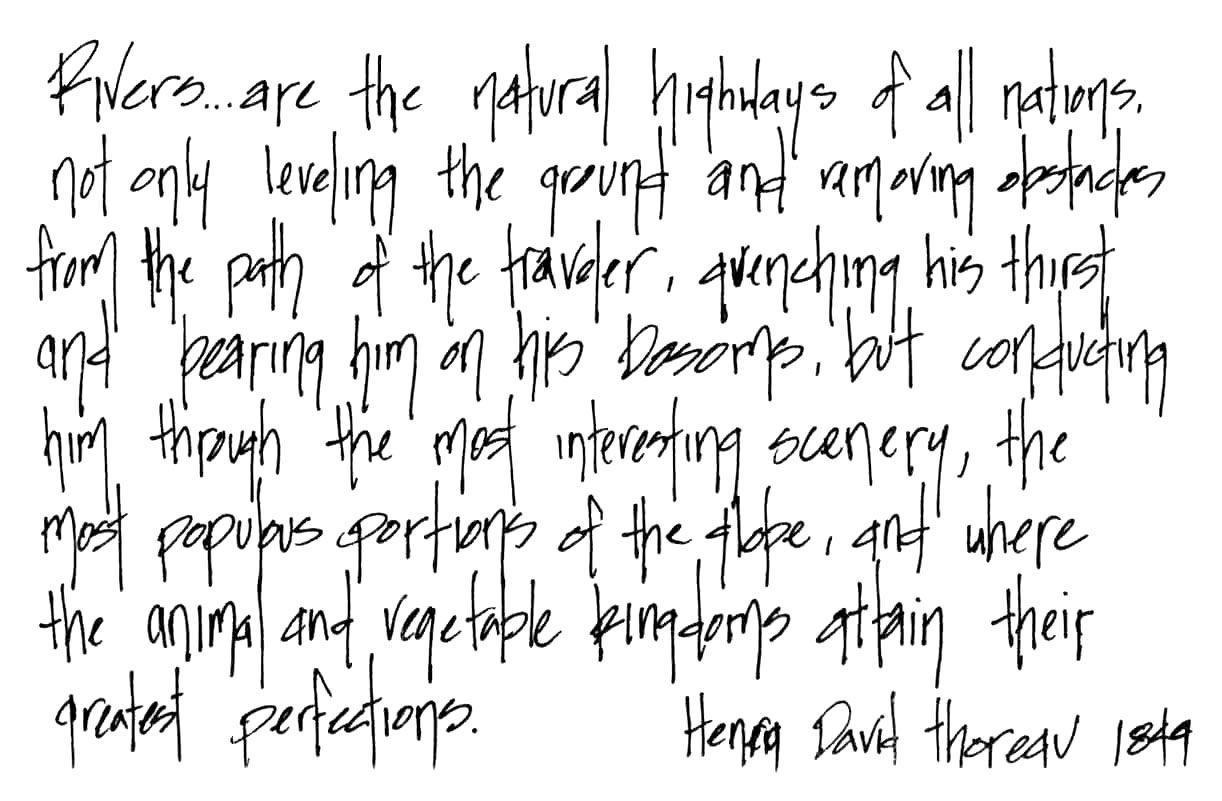 Rivers...are the natural highways of all nations,
not only leveling the ground and removing obstacles
from the path of the traveler, quenching his thirst
and bearing him on his bosoms, but conducting
him through the most interesting scenery, the
most populous portions of the globe, and where
the animal and vegetable kingdoms attain their
greatest perfections.
Henry David Thoreau 1849